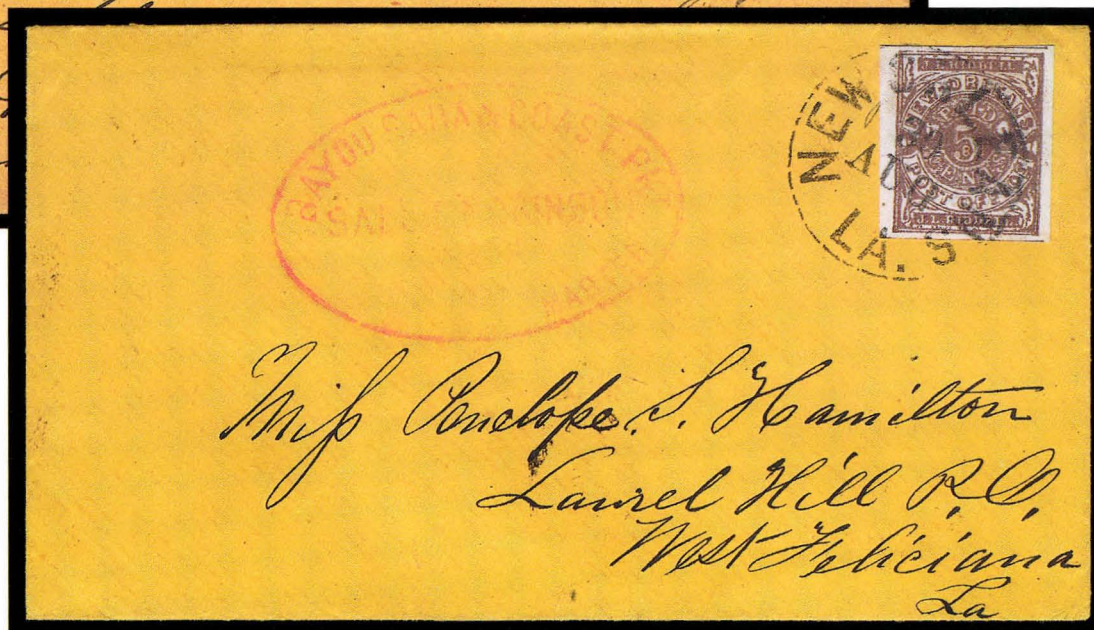 BAYOU SARA & COAST PKT
NEW
AU
LA.
NEW ORLEANS
PAID
5
CENTS
POST OFFICE
Miss Penelope. S. Hamilton
Laurel Hill P.O.
West Feliciana
La